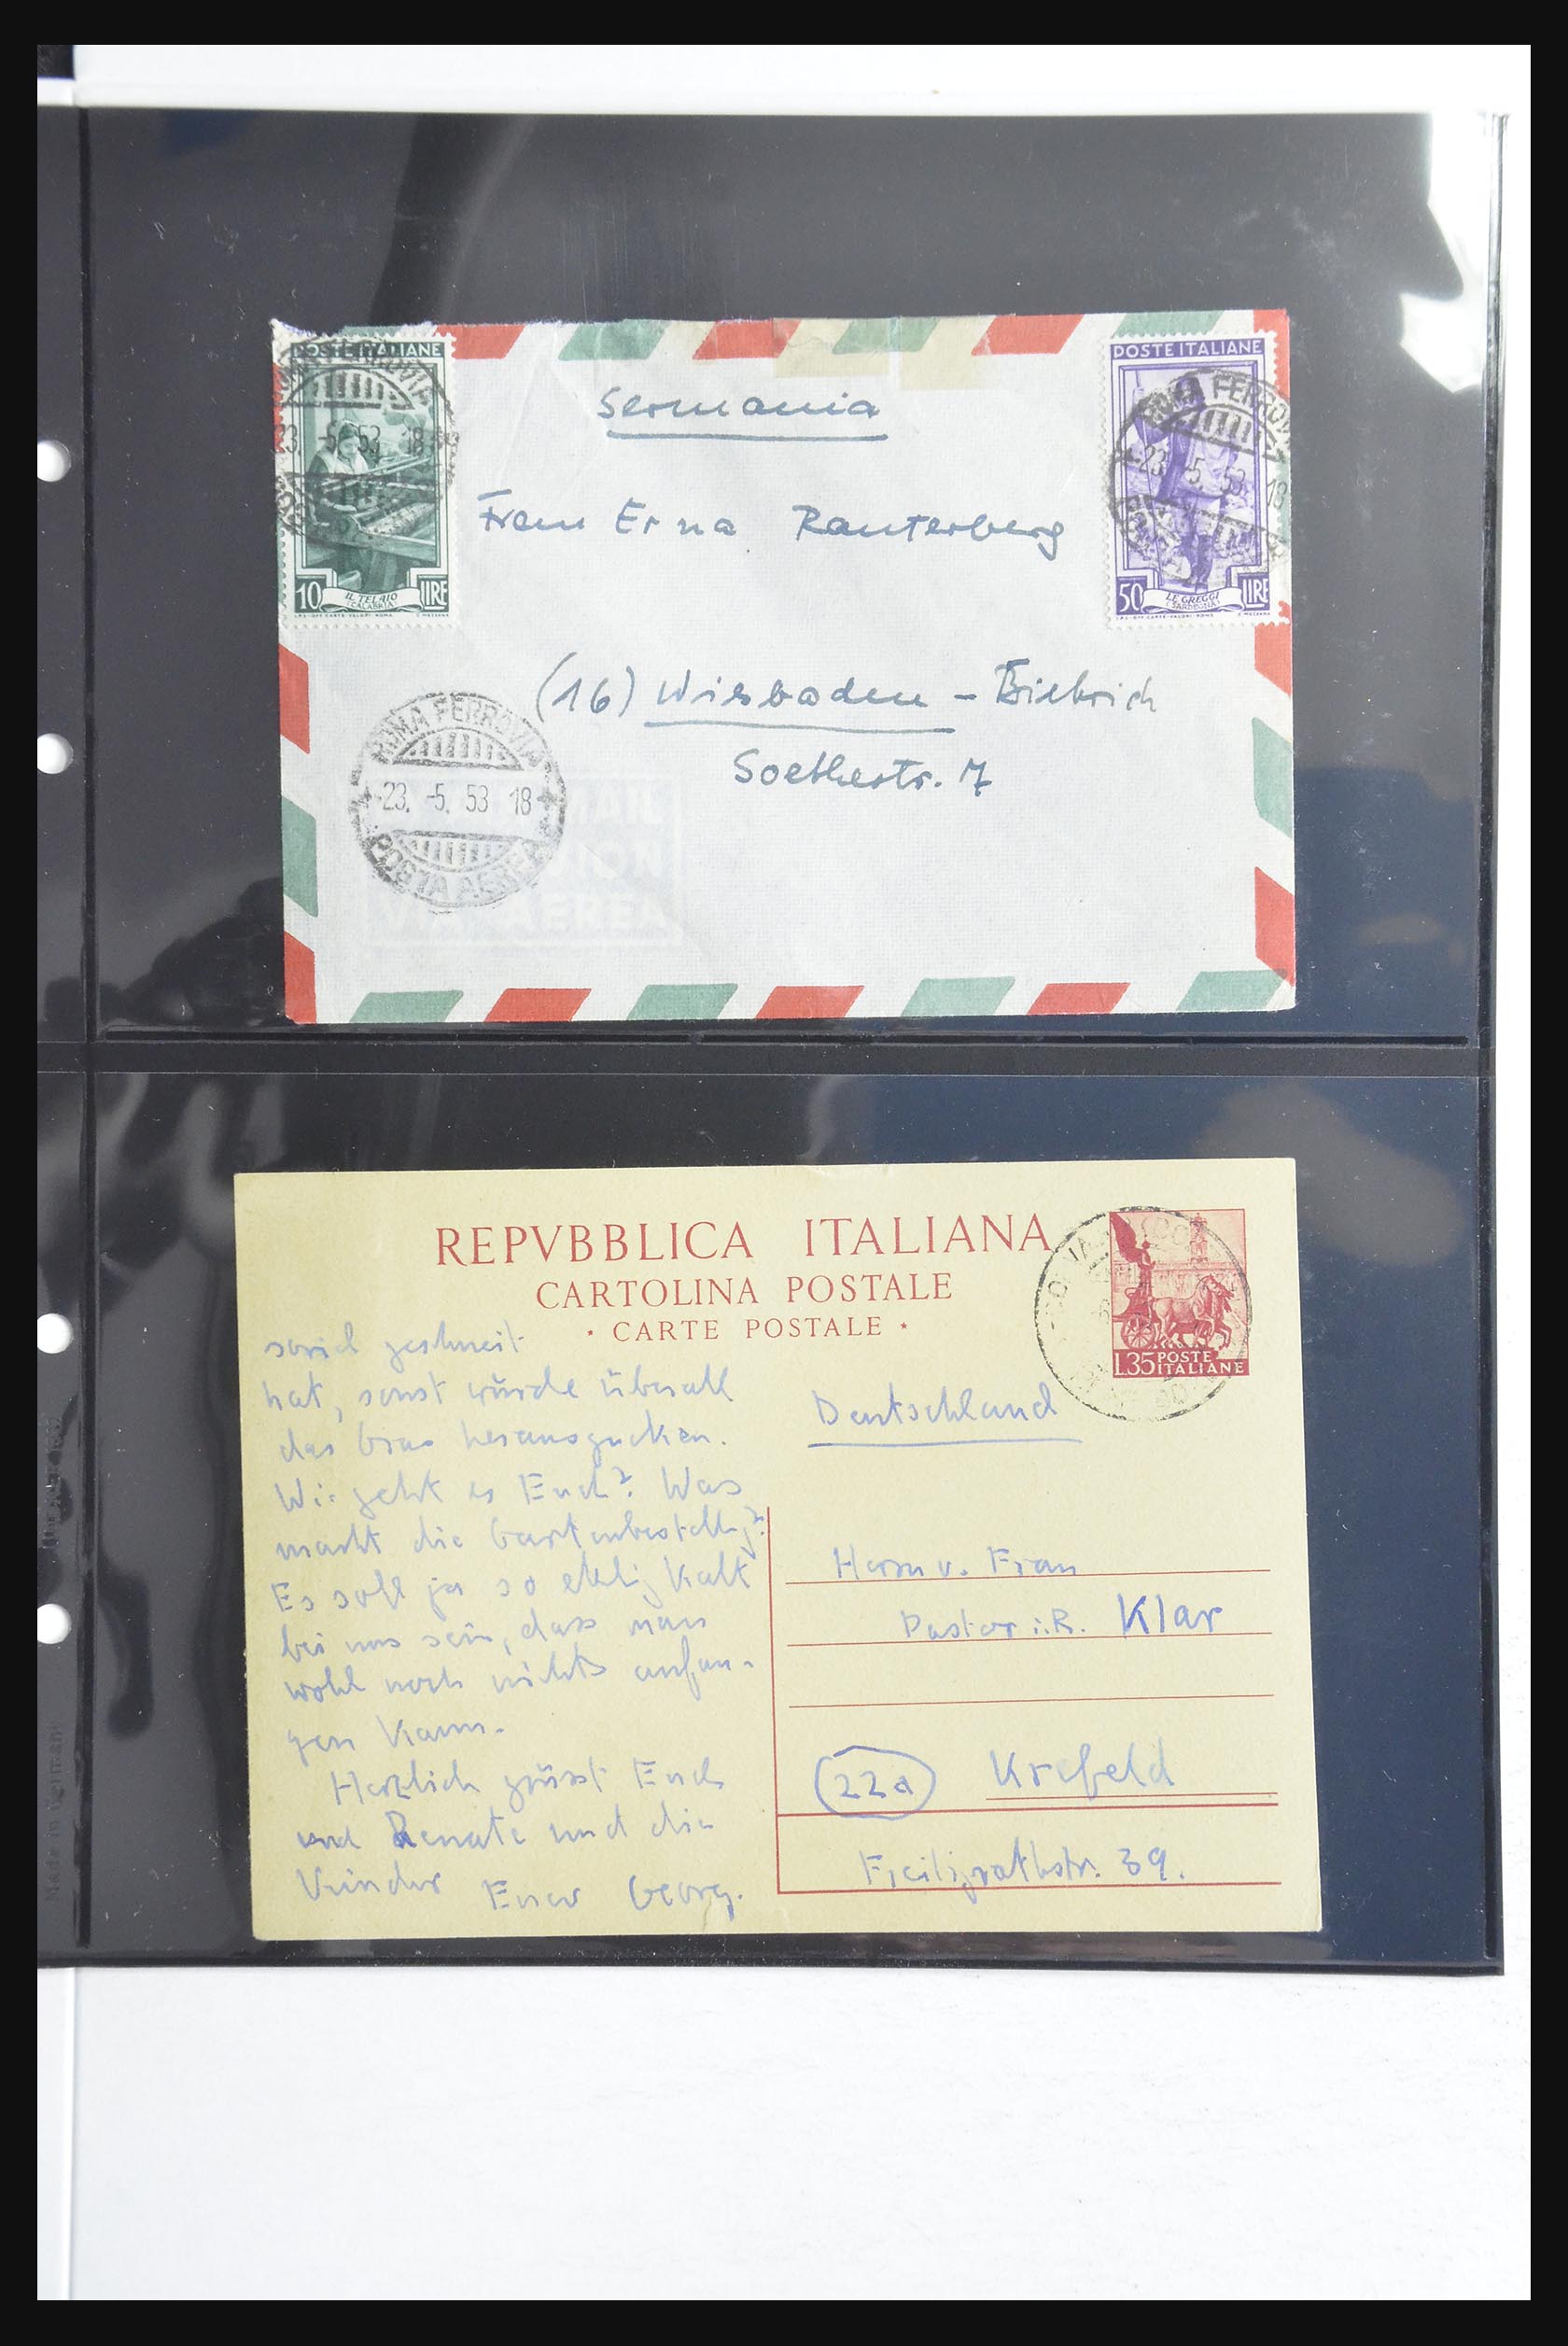 POSTE ITALIANE
10 LIRE
IL TELAIO
(CALABRIA)
POSTE ITALIANE
50 LIRE
LE GREGGI
(SARDEGNA)
ROMA FERROVIA
23. -5. 53 18
Germania
Frau Erna Rauterberg
(16) Wiesbaden - Biebrich
Goethestr. 7
ROMA FERROVIA
23. -5. 53 18
POSTA AEREA
MAIL
AVION
VIA AEREA
REPVBBLICA ITALIANA
CARTOLINA POSTALE
* CARTE POSTALE *
L.35 POSTE
ITALIANE
soviel geschneit
hat, sonst würde überall
das Gras herausgucken.
Wie geht es Euch? Was
macht die Gartenbestellg?
Es soll ja so eklig kalt
bei uns sein, dass man
wohl noch nichts anfan-
gen kann.
Herzlich grüsst Euch
und Renate und die
Kinder Euer Georg.
Deutschland
Herrn u. Frau
Pastor i.R. Klar
22a Krefeld
Freiligrathstr. 39.
Made in Germany